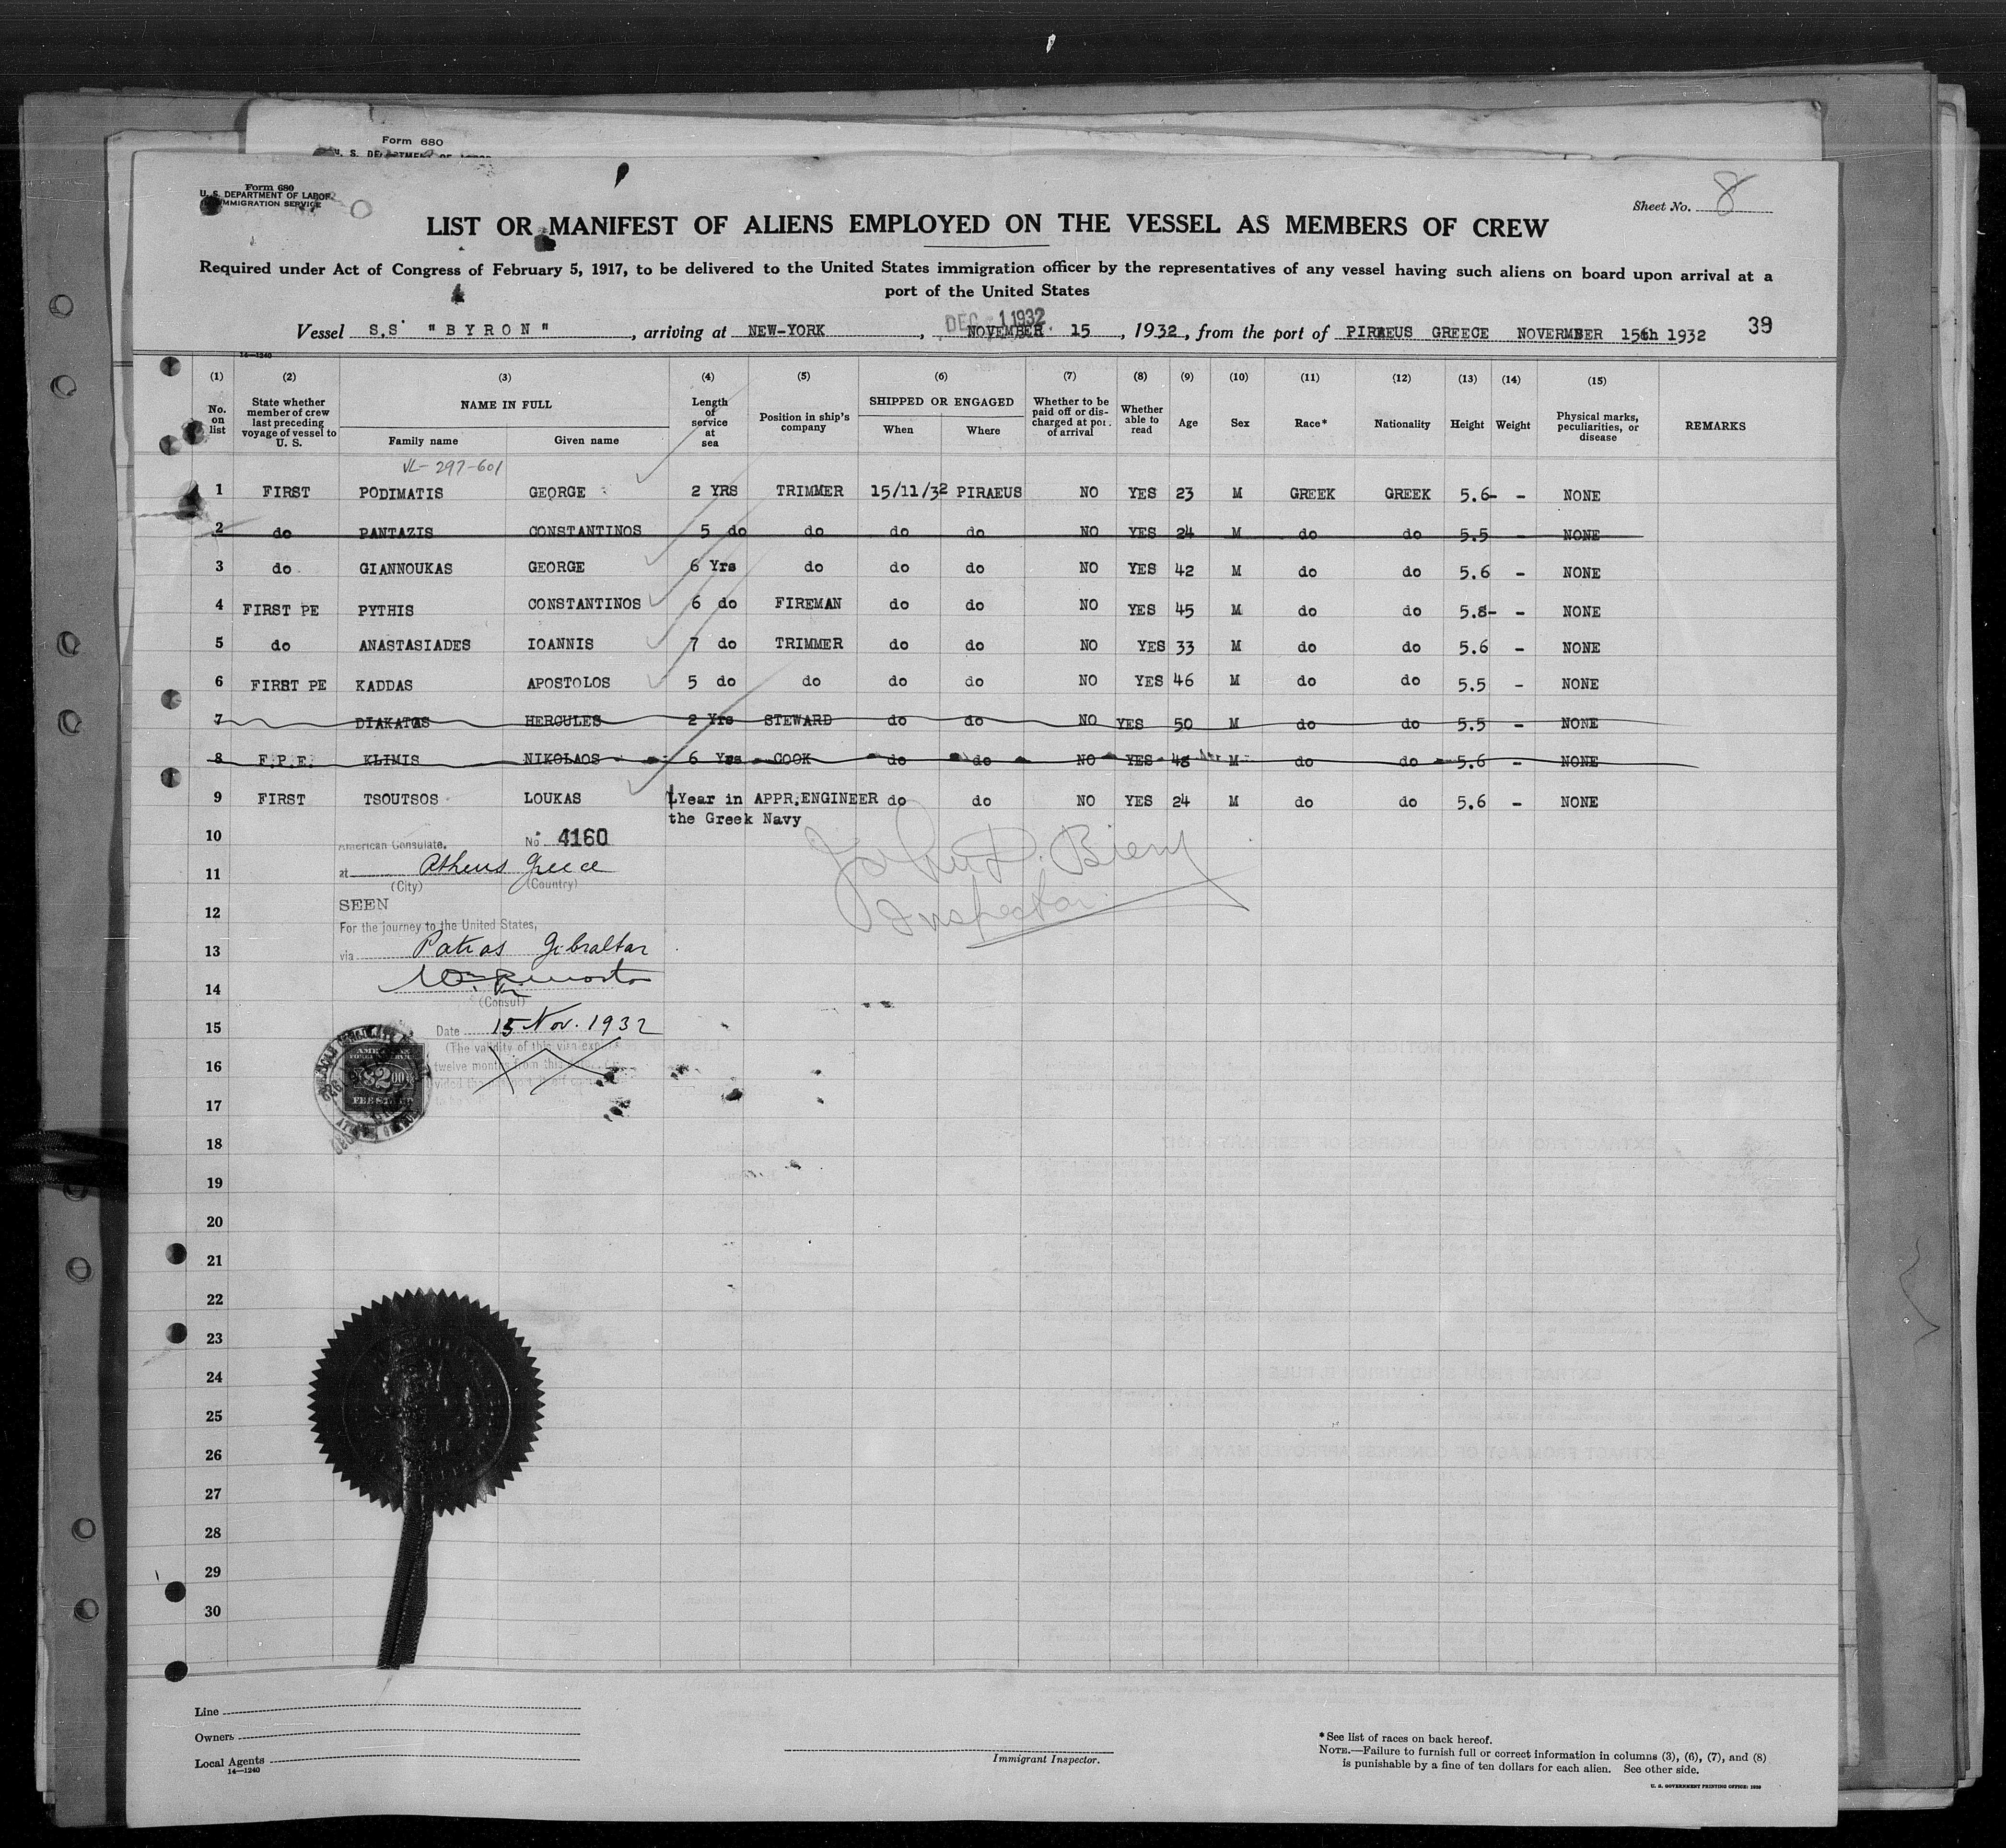 Form 680
U. S. DEPARTMENT OF LABOR
Form 680
U. S. DEPARTMENT OF LABOR
IMMIGRATION SERVICE
Sheet No. 8
LIST OR MANIFEST OF ALIENS EMPLOYED ON THE VESSEL AS MEMBERS OF CREW
Required under Act of Congress of February 5, 1917, to be delivered to the United States immigration officer by the representatives of any vessel having such aliens on board upon arrival at a
port of the United States
DEC 1 1932
Vessel S.S "BYRON", arriving at NEW-YORK, NOVEMBER 15, 1932, from the port of PIRAEUS GREECE NOVERMBER 15th 1932 39
14—1240
(1) (2) (3) (4) (5) (6) (7) (8) (9) (10) (11) (12) (13) (14) (15)
No. on list State whether member of crew last preceding voyage of vessel to U. S. NAME IN FULL Family name Given name Length of service at sea Position in ship's company SHIPPED OR ENGAGED When Where Whether to be paid off or discharged at port of arrival Whether able to read Age Sex Race* Nationality Height Weight Physical marks, peculiarities, or disease REMARKS
VL-297-601
1 FIRST PODIMATIS GEORGE 2 YRS TRIMMER 15/11/32 PIRAEUS NO YES 23 M GREEK GREEK 5.6- - NONE
2 do PANTAZIS CONSTANTINOS 5 do do do do NO YES 24 M do do 5.5 - NONE
3 do GIANNOUKAS GEORGE 6 Yrs do do do NO YES 42 M do do 5.6 - NONE
4 FIRST PE PYTHIS CONSTANTINOS 6 do FIREMAN do do NO YES 45 M do do 5.8- - NONE
5 do ANASTASIADES IOANNIS 7 do TRIMMER do do NO YES 33 M do do 5.6 - NONE
6 FIRST PE KADDAS APOSTOLOS 5 do do do do NO YES 46 M do do 5.5 - NONE
7 DIAKATOS HERCULES 2 Yrs STEWARD do do NO YES 50 M do do 5.5 - NONE
8 F.P.E. KLIMIS NIKOLAOS 6 Yrs COOK do do NO YES 48 M do do 5.6 - NONE
9 FIRST TSOUTSOS LOUKAS 1Year in APPR.ENGINEER do do NO YES 24 M do do 5.6 - NONE
the Greek Navy
10 American Consulate. No 4160
John D. Bieny
11 at Athens Greece
(City) (Country)
Inspector
12 SEEN
For the journey to the United States,
13 via Patras Gibraltar
14
(Consul)
15 Date 15 Nov. 1932
(The validity of this visa expires
16 twelve months from this
AMERICAN
$2.00
FEE STAMP
17
18
19
20
21
22
23
24
25
26
27
28
29
30
Line
Owners
Local Agents
14—1240
Immigrant Inspector.
*See list of races on back hereof.
NOTE.—Failure to furnish full or correct information in columns (3), (6), (7), and (8)
is punishable by a fine of ten dollars for each alien. See other side.
U. S. GOVERNMENT PRINTING OFFICE: 1930